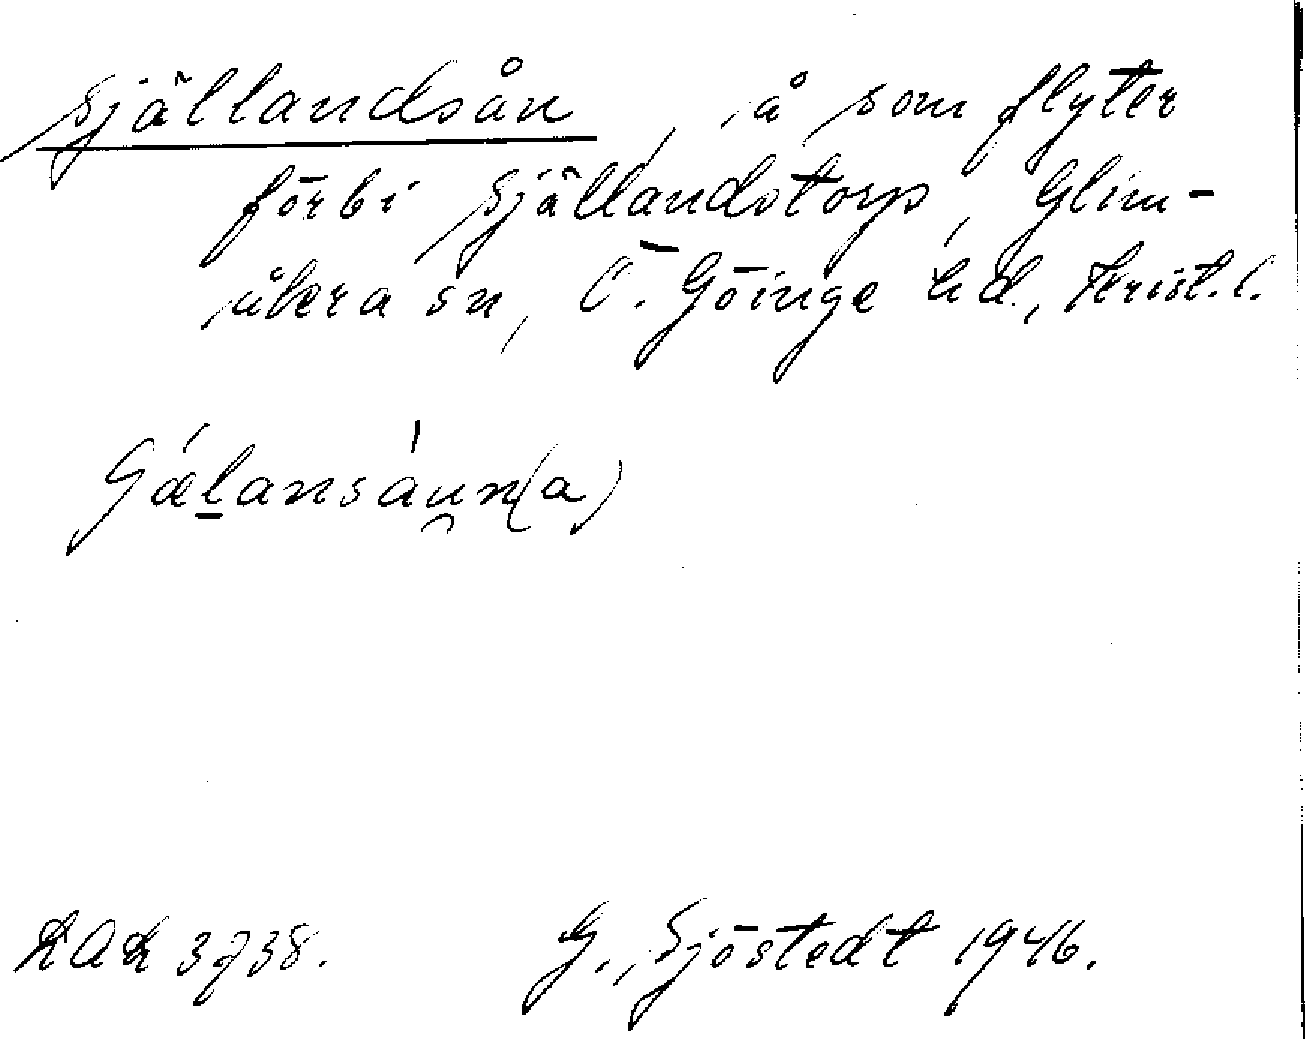 Själlandsån, å som flyter
förbi Själlandstorp, Glim-
åkra sn, Ö. Göinge hd., Krist.l.
Sǽlansáu̯n(a)
LAL 3738.
G. Sjöstedt 1946.